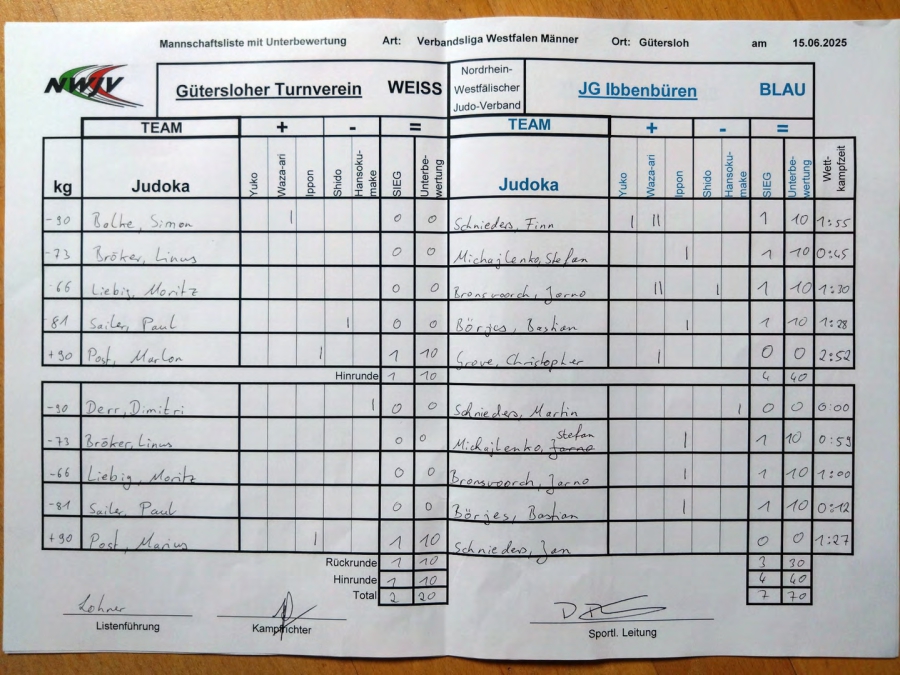 Mannschaftsliste mit Unterbewertung Art: Verbandsliga Westfalen Männer Ort: Gütersloh am 15.06.2025
NWJV Gütersloher Turnverein WEISS Nordrhein-Westfälischer Judo-Verband JG Ibbenbüren BLAU
TEAM + - = TEAM + - =
kg Judoka Yuko Waza-ari Ippon Shido Hansoku-make SIEG Unterbe-wertung Judoka Yuko Waza-ari Ippon Shido Hansoku-make SIEG Unterbe-wertung Wett-kampfzeit
-90 Bolke, Simon | 0 0 Schnieders, Finn | || 1 10 1:55
-73 Bröker, Linus 0 0 Michajlenko, Stefan | 1 10 0:45
-66 Liebig, Moritz 0 0 Bronsvoorch, Jarno || | 1 10 1:30
-81 Sailer, Paul | 0 0 Börjes, Bastian | 1 10 1:28
+90 Post, Marlon | 1 10 Greve, Christopher | 0 0 2:52
Hinrunde 1 10 4 40
-90 Derr, Dimitri | 0 0 Schnieders, Martin | 0 0 0:00
-73 Bröker, Linus 0 0 Michajlenko, Jarno Stefan | 1 10 0:59
-66 Liebig, Moritz 0 0 Bronsvoorch, Jarno | 1 10 1:00
-81 Sailer, Paul 0 0 Börjes, Bastian | 1 10 0:12
+90 Post, Marius | 1 10 Schnieders, Jan 0 0 1:27
Rückrunde 1 10 3 30
Hinrunde 1 10 4 40
Total 2 20 7 70
Lohner
Listenführung Kampfrichter Sportl. Leitung